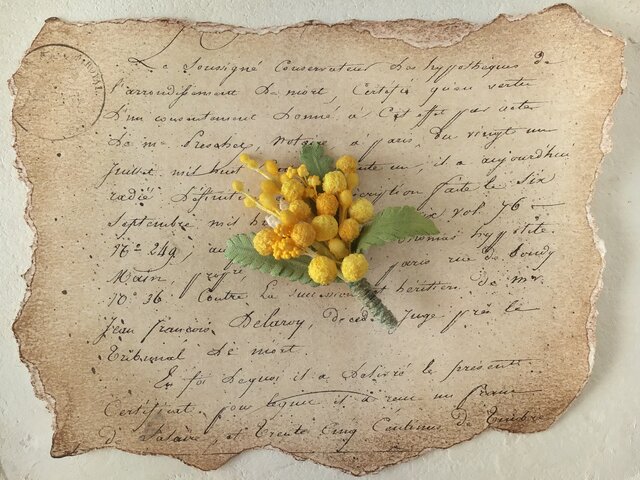 Le Soussigné Conservateur des hypothèques de
l'arrondissement de mort, Certifie qu'en vertu
D'un consentement Donné, a Cet effet par acte
De me Preschez, Notaire à paris, Du vingt un
Juillet mil huit un, il a aujourdhui
radié Définit inscription faite le Six
Septembre mil h vol. 76
No 249, au hypoth.
Main, paris rue de Bondy
No 36. Contre La succession et héritiers de mr.
Jean françois Delaroy, décéd Juge près le
Tribunal de mort.
En foi de quoi il a Délivré le présent
Certificat, pour lequel il a reçu un franc
de Salaire, et Trente Cinq Centimes de Timbre